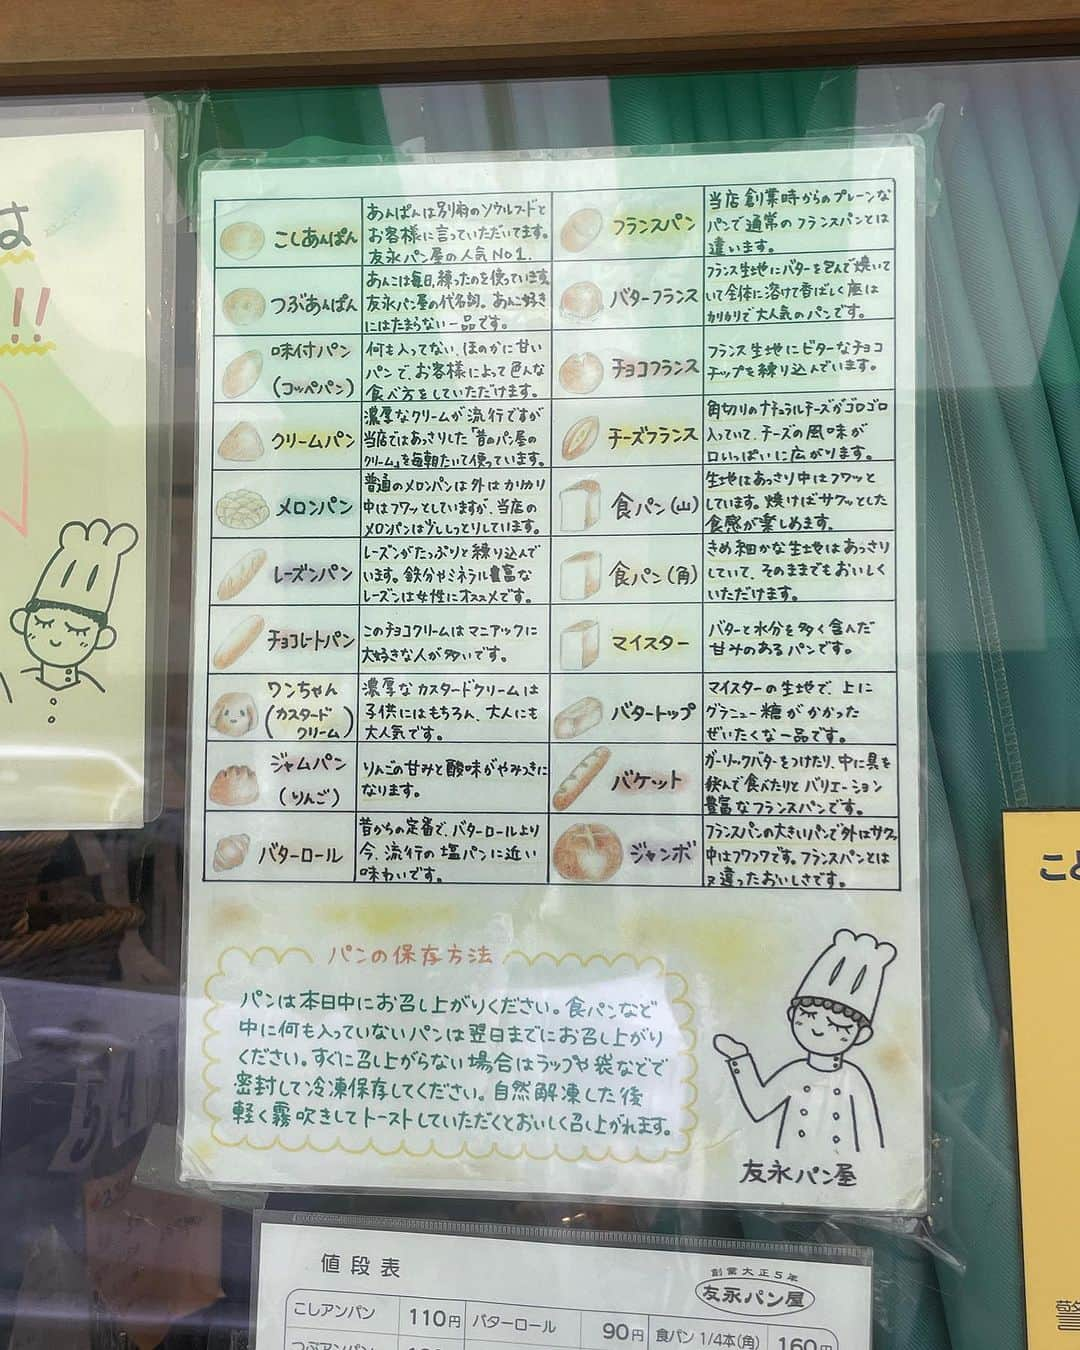 は
!!
こしあんぱん
あんぱんは別府のソウルフードと
お客様に言っていただいてます。
友永パン屋の人気No1.
つぶあんぱん
あんこは毎日練ったのを使っています。
友永パン屋の代名詞。あんこ好き
にはたまらない一品です。
味付パン
(コッペパン)
何も入ってない、ほのかに甘い
パンで、お客様によって色んな
食べ方をしていただけます。
クリームパン
濃厚なクリームが流行ですが
当店ではあっさりした「昔のパン屋の
クリーム」を毎朝たいて使っています。
メロンパン
普通のメロンパンは外はカリカリ
中はフワッとしていますが、当店の
メロンパンは少ししっとりしています。
レーズンパン
レーズンがたっぷりと練り込んで
います。鉄分やミネラル豊富な
レーズンは女性にオススメです。
チョコレートパン
このチョコクリームはマニアックに
大好きな人が多いです。
ワンちゃん
(カスタード
クリーム)
濃厚なカスタードクリームは
子供にはもちろん、大人にも
大人気です。
ジャムパン
(りんご)
りんごの甘みと酸味がやみつきに
なります。
バターロール
昔からの定番で、バターロールより
今、流行の塩パンに近い
味わいです。
フランスパン
当店創業時からのプレーンな
パンで通常のフランスパンとは
違います。
バターフランス
フランス生地にバターを包んで焼いて
いて全体に溶けて香ばしく底は
カリカリで大人気のパンです。
チョコフランス
フランス生地にビターなチョコ
チップを練り込んでいます。
チーズフランス
角切りのナチュラルチーズがゴロゴロ
入っていて、チーズの風味が
口いっぱいに広がります。
食パン(山)
生地はあっさり中はフワッと
しています。焼けばサクッとした
食感が楽しめます。
食パン(角)
きめ細かな生地はあっさり
していて、そのままでもおいしく
いただけます。
マイスター
バターと水分を多く含んだ
甘みのあるパンです。
バタートップ
マイスターの生地で、上に
グラニュー糖がかかった
ぜいたくな一品です。
バケット
ガーリックバターをつけたり、中に具を
挟んで食べたりとバリエーション
豊富なフランスパンです。
ジャンボ
フランスパンの大きいパンで外はサクッ
中はフワフワです。フランスパンとは
又違ったおいしさです。
パンの保存方法
パンは本日中にお召し上がりください。食パンなど
中に何も入っていないパンは翌日までにお召し上がり
ください。すぐに召し上がらない場合はラップや袋などで
密封して冷凍保存してください。自然解凍した後
軽く霧吹きしてトーストしていただくとおいしく召し上がれます。
友永パン屋
値段表
創業大正5年
友永パン屋
こしアンパン 110円 バターロール 90円 食パン 1/4本(角) 160円
つぶアンパン
こと
警